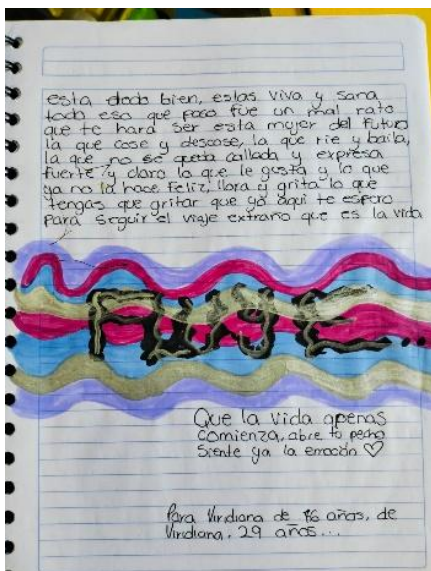 esta dodo bien, estas viva y sana
todo eso que paso fue un mal rato
que te hará ser esta mujer del futuro
la que cose y descose, la que rie y baila,
la que no se queda callada y expresa
fuerte y claro lo que le gusta y lo que
ya no la hace feliz, llora y grita lo que
tengas que gritar que yo aqui te espero
para seguir el viaje extraño que es la vida
FLUYE...
Que la vida apenas
comienza, abre tu pecho
siente ya la emoción ♡
Para Viridiana de 16 años, de
Viridiana, 29 años...